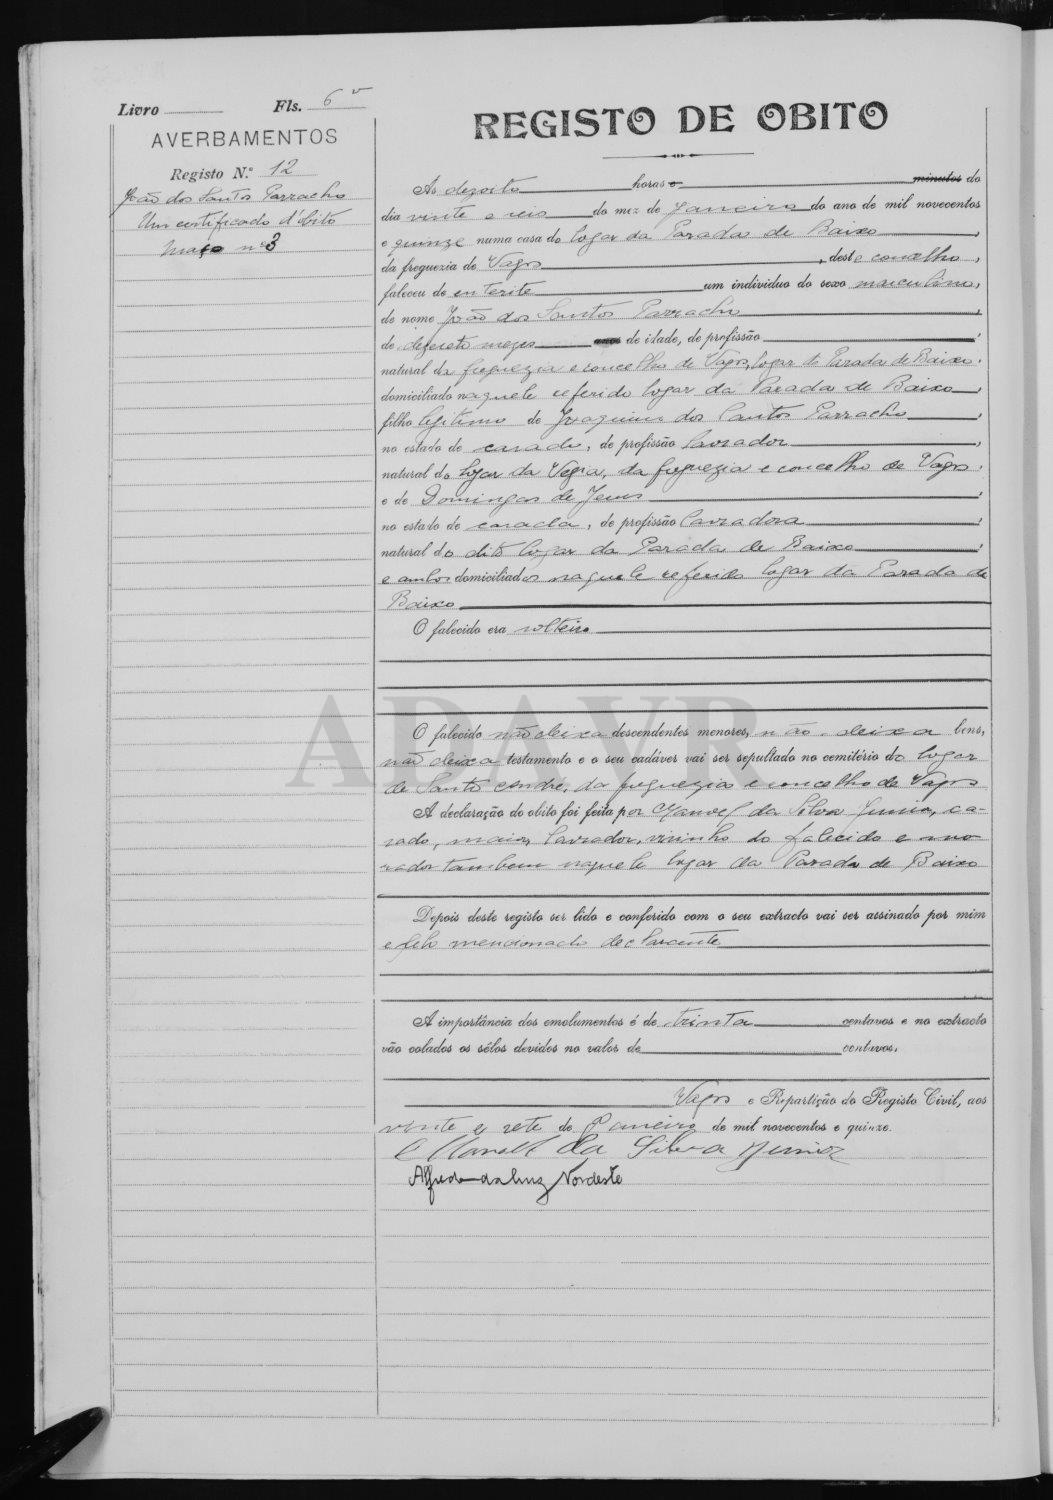 Livro Fls. 6 v
AVERBAMENTOS
Registo N.º 12
João dos Santos Parracho
Um certificado d'óbito
Maço nº 3
REGISTO DE OBITO
Ás dezoito horas e minutos do
dia vinte e seis do mez de Janeiro do ano de mil novecentos
e quinze numa casa do logar da Parada de Baixo,
da freguezia de Vagos, deste concelho,
faleceu de enterite um individuo do sexo masculino,
de nome João dos Santos Parracho,
de dezesete mezes anos de idade, de profissão,
natural da freguezia e concelho de Vagos, logar da Parada de Baixo,
domiciliado naquele referido logar da Parada de Baixo,
filho legitimo de Joaquim dos Santos Parracho,
no estado de casado, de profissão lavrador,
natural do logar da Vegia, da freguezia e concelho de Vagos,
e de Domingas de Jesus,
no estado de casada, de profissão lavradora,
natural do dito logar da Parada de Baixo,
e ambos domiciliados naquele referido logar da Parada de
Baixo
O falecido era solteiro
O falecido não deixa descendentes menores, não deixa bens,
não deixa testamento e o seu cadáver vai ser sepultado no cemitério do logar
de Santo André, da freguezia e concelho de Vagos
A declaração do obito foi feita por Manoel da Silva Junior, ca-
sado, maior, lavrador, visinho do falecido e mo-
rador tambem naquele logar da Parada de Baixo
Depois deste registo ser lido e conferido com o seu extracto vai ser assinado por mim
e pelo mencionado declarante
A importância dos emolumentos é de trinta centavos e no extracto
vão colados os sêlos devidos no valor de centavos.
Vagos e Repartição do Registo Civil, aos
vinte e sete de Janeiro de mil novecentos e quinze.
Manoel da Silva Junior
Alfredo da Luz Nordeste
ADAVR